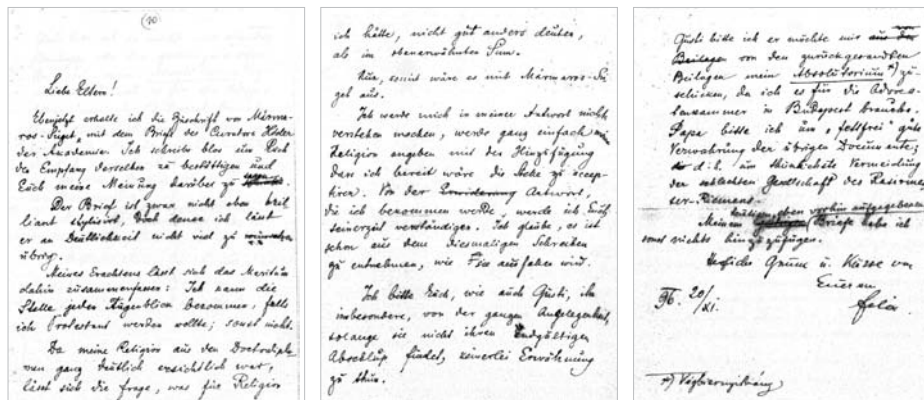 (10)
Liebe Eltern!
Ebenjetzt erhalte ich die Zuschrift von Mármaros-
-Sziget, mit dem Brief des Curators
der Akademie. Ich schreibe blos um Euch
den Empfang derselben zu bestättigen und
Euch meine Meinung darüber zu sagen.
Der Brief ist zwar nicht eben bril
liant stylisirt, doch denke ich lässt
er an Deutlichkeit nicht viel zu
übrig.
Meines Erachtens lässt sich das Meritum
dahin zusammenfassen: Ich kann die
Stelle jeden Augenblick bekommen, falls
ich Protestant werden wollte; sonst nicht.
Da meine Religion aus dem Doctordiplo-
men ganz deutlich ersichtlich war,
lässt sich die Frage, was für Religion
ich hätte, nicht gut anders deuten,
als im obenerwähnten Sinn.
Nun, somit wäre es mit Mármaros-Szi-
get aus.
Ich werde mich in meiner Antwort nichts
verstehen machen, werde ganz einfach m
Religion angeben mit der Hinzufügung
dass ich bereit wäre die Stelle zu accep-
tiren. Von der Erwiderung Antwort,
die ich bekommen werde, werde ich Euch
seinerzeit verständigen. Ich glaube, es ist
schon aus dem diesmaligen Schreiben
zu entnehmen, wie sie ausfallen wird.
Ich bitte Euch, wie auch Gusti, ihn
insbesondere, von der ganzen Angelegenheit,
solange sie nicht ihren endgültigen
Abschluß findet, keinerlei Erwähnung
zu thun.
Gusti bitte ich er möchte mir
Beilagen von den zurückgesandten
Beilagen mein Absolutorium *) zu
schicken, da ich es für die Advoca-
tenkammer in Budapest brauche.
Papa bitte ich um "fettfrei" gute
Verwahrung der übrigen Documente;
d.h. um thunlichste Vermeidung
der schlechten Gesellschaft des Rasirmes
ser-Riemens.
Meinem gestrigen, eben vorhin aufgegebenen
Briefe habe ich
sonst nichts hinzuzufügen.
Herzliche Grüsse u. Küsse von
Eurem
Felix
96. 20/XI.
*) Végbizonyítvány